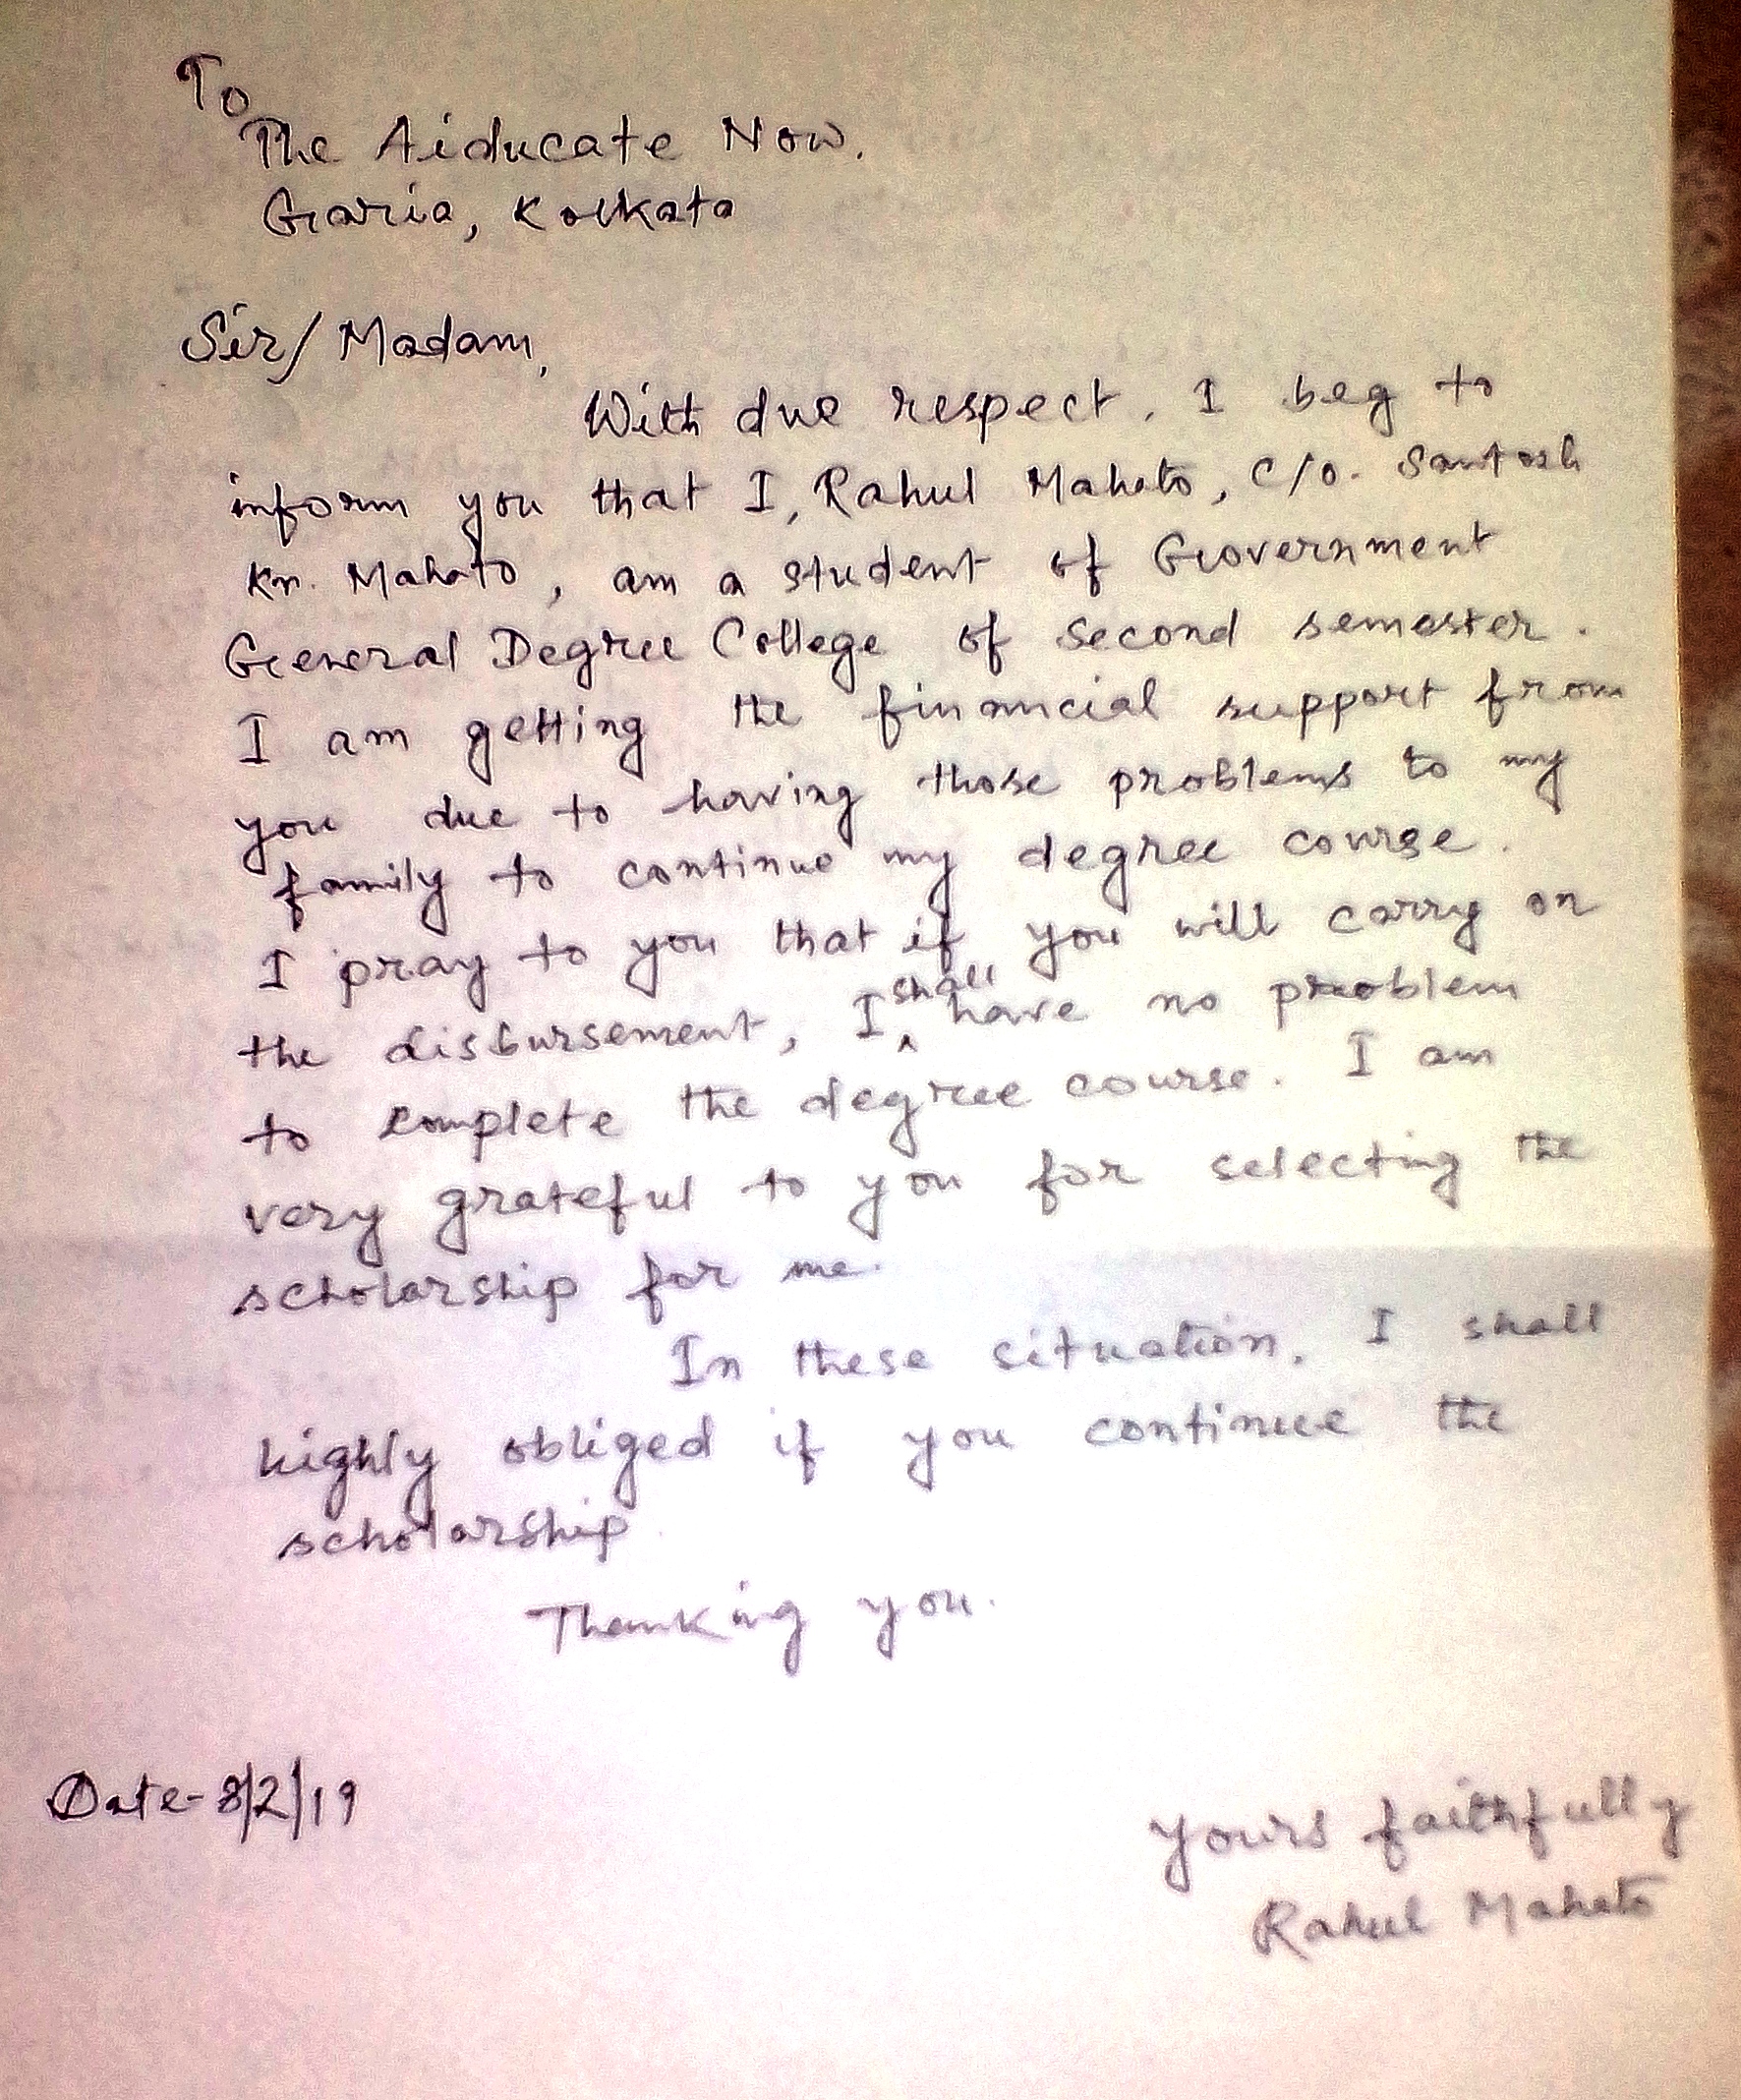 To
The Aiducate Now.
Garia, Kolkata
Sir/Madam,
With due respect, I beg to
inform you that I, Rahul Mahato, C/O. Santosh
Kr. Mahato, am a student of Government
General Degree College of second semester.
I am getting the financial support from
you due to having those problems to my
family to continue my degree course.
I pray to you that if you will carry on
the disbursement, I shall have no problem
to complete the degree course. I am
very grateful to you for selecting the
scholarship for me.
In these situation, I shall
highly obliged if you continue the
scholarship
Thanking you.
Date-8/2/19
yours faithfully
Rahul Mahato